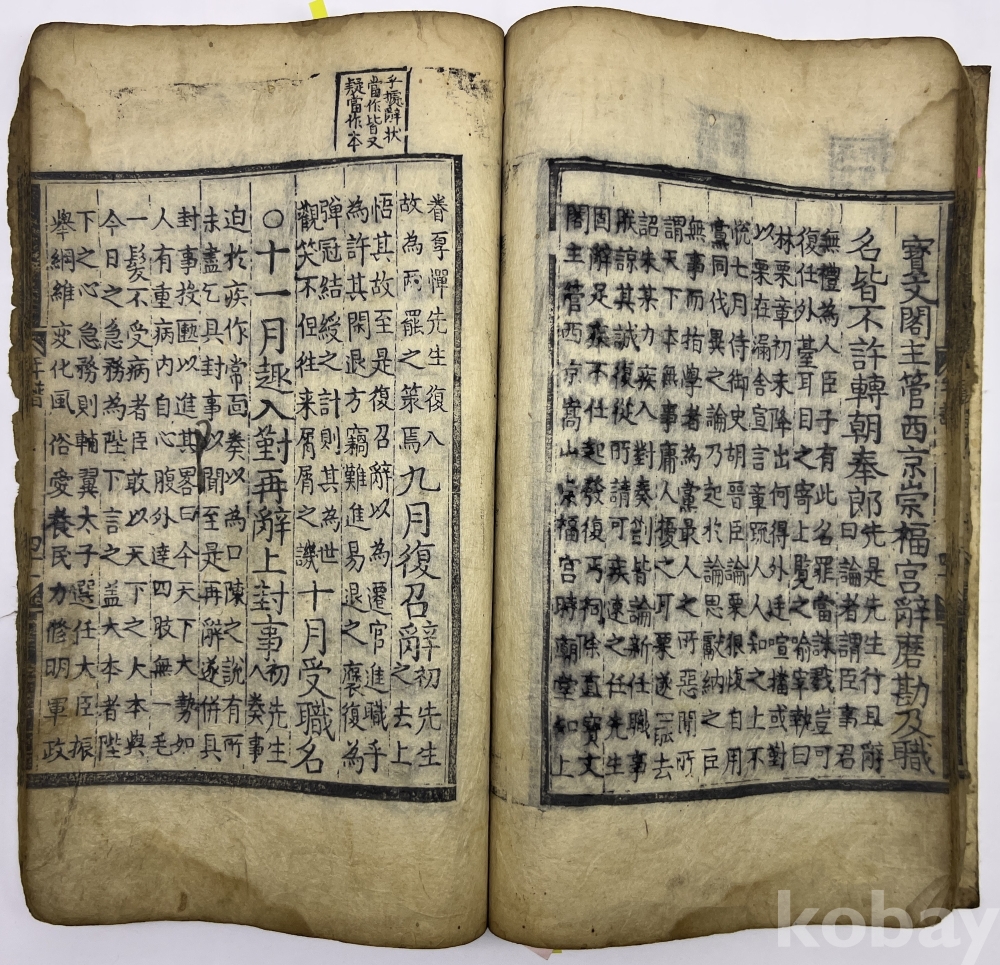 寶文閣主管西京崇福宮辭磨勘及職
名皆不許轉朝奉郎先是先生行且辭
曰論者謂臣事君
無禮為人臣子有此名罪當誅戮豈可
復任外臺耳目之寄上覽之喻宰執曰
林栗章初未降出何得外廷喧播或對
以栗在漏舍宣言章疏人人知之上不
悅七月侍御史胡晉臣論栗狠愎自用
黨同伐異之論乃起於論思獻納之臣
無事而指學者為黨最人之所惡聞所
謂天下本無事庸人擾之耳栗遂去
詔朱某力疾入對奏箚皆論新任職事
朕諒其誠復從所請可疾速之任先生
固辭足疾不仕起發復丐祠除直寶文
閣主管西京嵩山崇福宮時廟堂知上
乎擬辭状
當作皆又
疑當作本
眷厚憚先生復入
故為兩罷之策焉九月復召辭初先生
之去上
悟其故至是復召辭以為遷官進職乎
為許其閑退方竊難進易退之褒復為
彈冠結綬之計則其為世
觀笑不但往来屑屑之譏十月受職名
○十一月趣入對再辭上封事初先生
入奏事
迫於疾作常面奏以為口陳之說有所
未盡乞具封事以聞至是再辭遂併具
封事投匭以進其畧曰今天下大勢如
人有重病内自心腹外達四肢無一毛
一髮不受病者臣敢以天下之大本與
今日之急務為陛下言之盖大本者陛
下之心急務則輔翼太子選任大臣振
舉綱維变化風俗愛養民力修明軍政
年譜
kobay